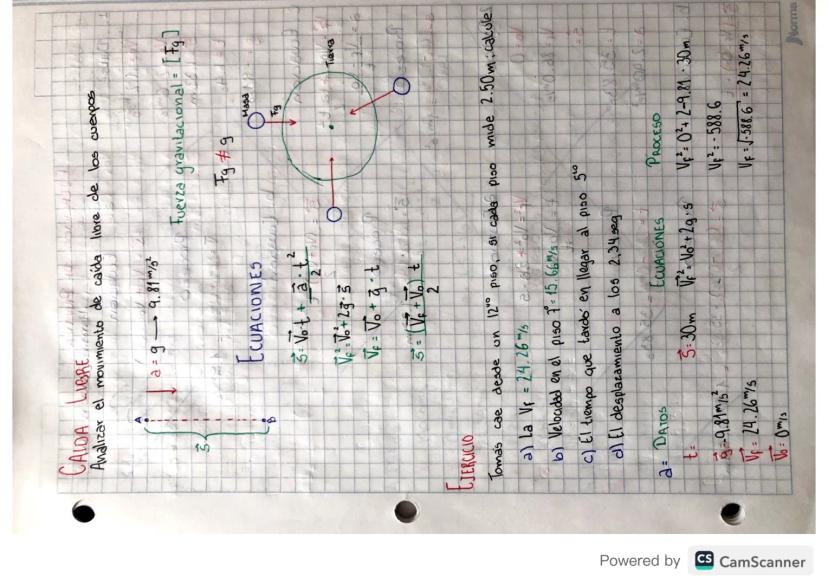 CAIDA LIBRE
Analizar el movimiento de caída libre de los cuerpos
A
a = g → 9.81 m/s²
S⃗
B
Fuerza gravitacional = [Fg]
Fg ≠ g
ECUACIONES
S⃗ = V⃗o·t + a⃗·t²/2
V⃗f² = V⃗o² + 2g⃗·s⃗
V⃗f = V⃗o + g⃗·t
S⃗ = (V⃗f + V⃗o) t/2
Masa
Fg
Tierra
EJERCICIO
Tomás cae desde un 12ᵛᵒ piso, si cada piso mide 2.50m: calcule
a) La Vf = 24.26 m/s
b) Velocidad en el piso 7° = 15.66 m/s
c) El tiempo que tardó en llegar al piso 5ᵗᵒ
d) El desplazamiento a los 2.34 seg
a = DATOS
t =
g⃗ = 9.81 m/s²
V⃗f = 24.26 m/s
V⃗o = 0 m/s
S⃗ = 30m
ECUACIONES
V⃗f² = V⃗o² + 2g·s
PROCESO
Vf² = 0² + 2-9.81 · 30m
Vf² = -588.6
Vf = √-588.6 = 24.26 m/s
Norma
Powered by CS CamScanner